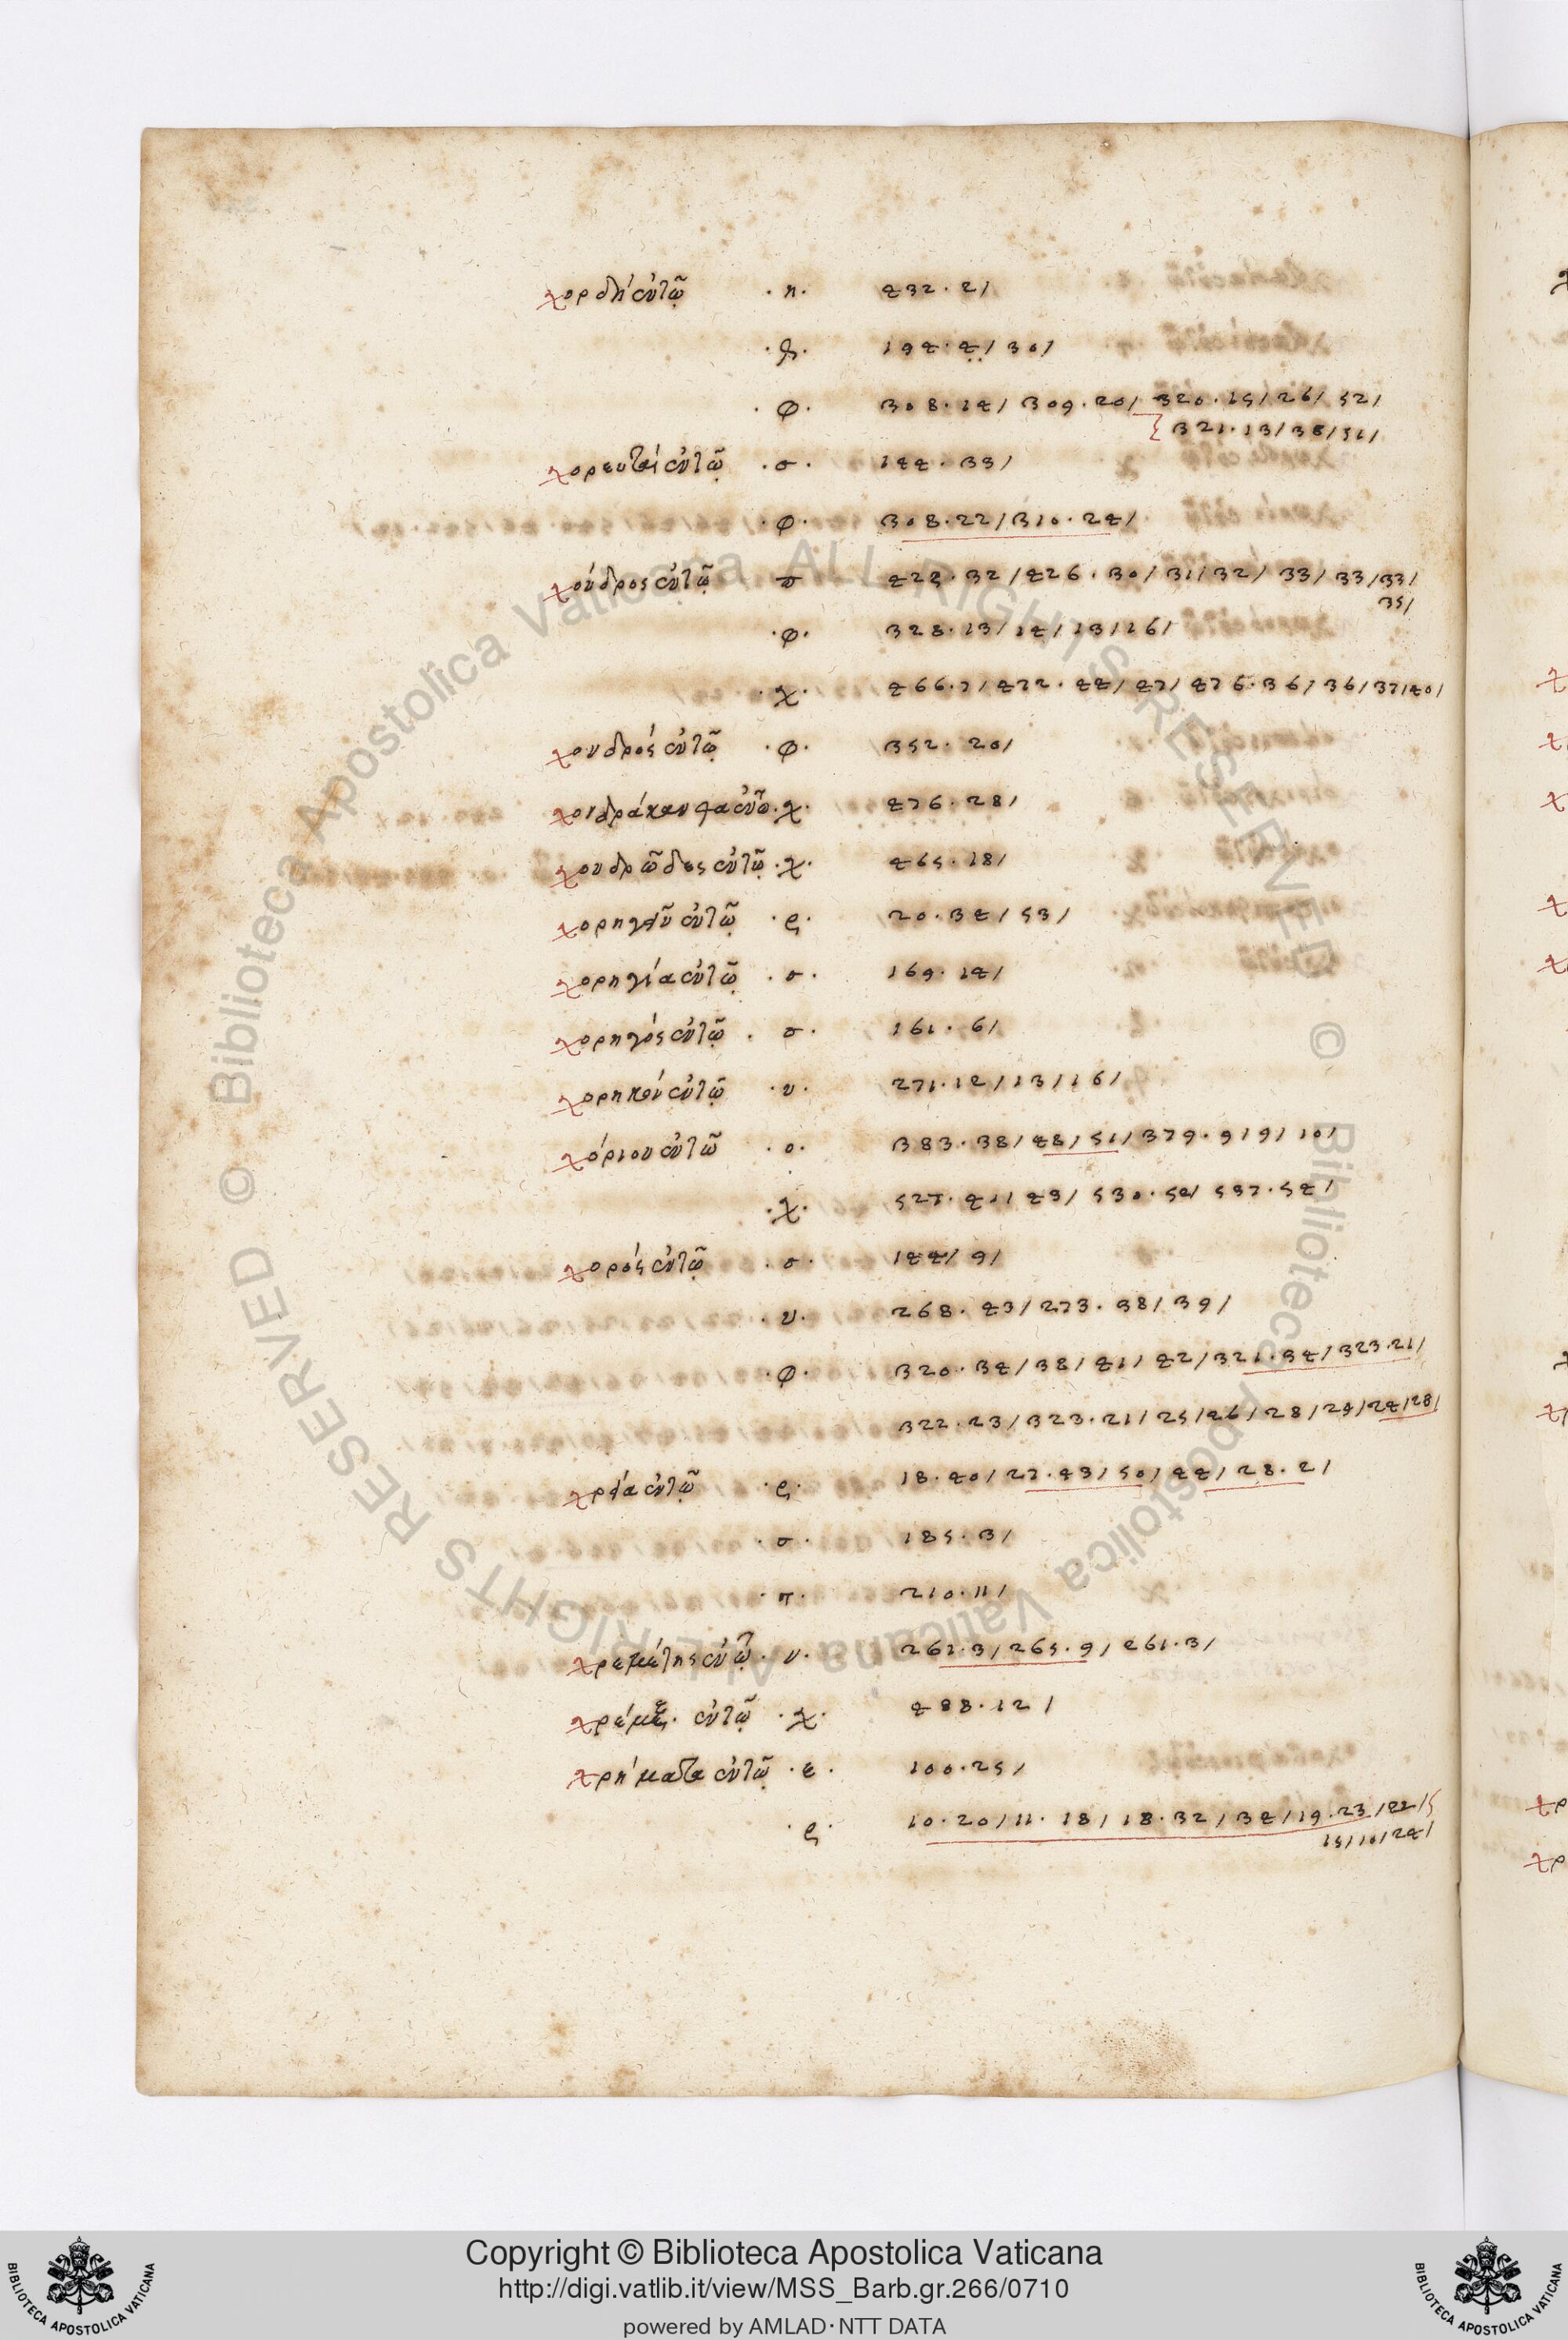 χορδή ἐν τῷ · η · 432 · 2 /
· θ · 194 · 4 / 30 /
· φ · 308 · 14 / 309 · 20 / 320 · 15 / 26 / 52 /
321 · 13 / 38 / 51 /
χορευταί ἐν τῷ · σ · 144 · 33 /
· φ · 308 · 22 / 310 · 24 /
χόνδρος ἐν τῷ π 425 · 32 / 426 · 30 / 31 / 32 / 33 / 33 / 33 /
35 /
· φ · 328 · 13 / 14 / 13 / 16 /
· χ · 466 · 7 / 472 · 44 / 47 / 476 · 36 / 36 / 37 / 40 /
χονδρός ἐν τῷ · φ · 352 · 20 /
χονδράκανθα ἐν τῷ · χ · 476 · 28 /
χονδρῶδες ἐν τῷ · χ · 465 · 18 /
χορηγεῖν ἐν τῷ · ς · 20 · 34 / 53 /
χορηγία ἐν τῷ · σ · 169 · 14 /
χορηγός ἐν τῷ · σ · 161 · 6 /
ἐν τῷ · υ · 271 · 12 / 13 / 16 /
χόριον ἐν τῷ · ο · 383 · 38 / 48 / 51 / 379 · 9 / 9 / 10 /
· χ · 527 · 40 / 43 / 530 · 50 / 537 · 54 /
χορός ἐν τῷ · σ · 144 / 9 /
· υ · 268 · 43 / 273 · 38 / 39 /
· φ · 320 · 34 / 38 / 41 / 42 / 321 · 34 / 323 · 21 /
322 · 23 / 323 · 21 / 25 / 26 / 28 / 24 / 24 / 28 /
χρεία ἐν τῷ · ς · 18 · 40 / 27 · 43 / 50 / 44 / 28 · 2 /
· σ · 185 · 3 /
· τ · 210 · 11 /
χρεμέτης ἐν τῷ · υ · 261 · 3 / 265 · 9 / 261 · 3 /
χρέμξ · ἐν τῷ · χ · 488 · 12 /
χρήματα ἐν τῷ · ε · 100 · 25 /
· ς · 10 · 20 / 11 · 18 / 18 · 32 / 34 / 19 · 23 / 22 /
15 / 10 / 24 /
Copyright © Biblioteca Apostolica Vaticana
http://digi.vatlib.it/view/MSS_Barb.gr.266/0710
powered by AMLAD·NTT DATA